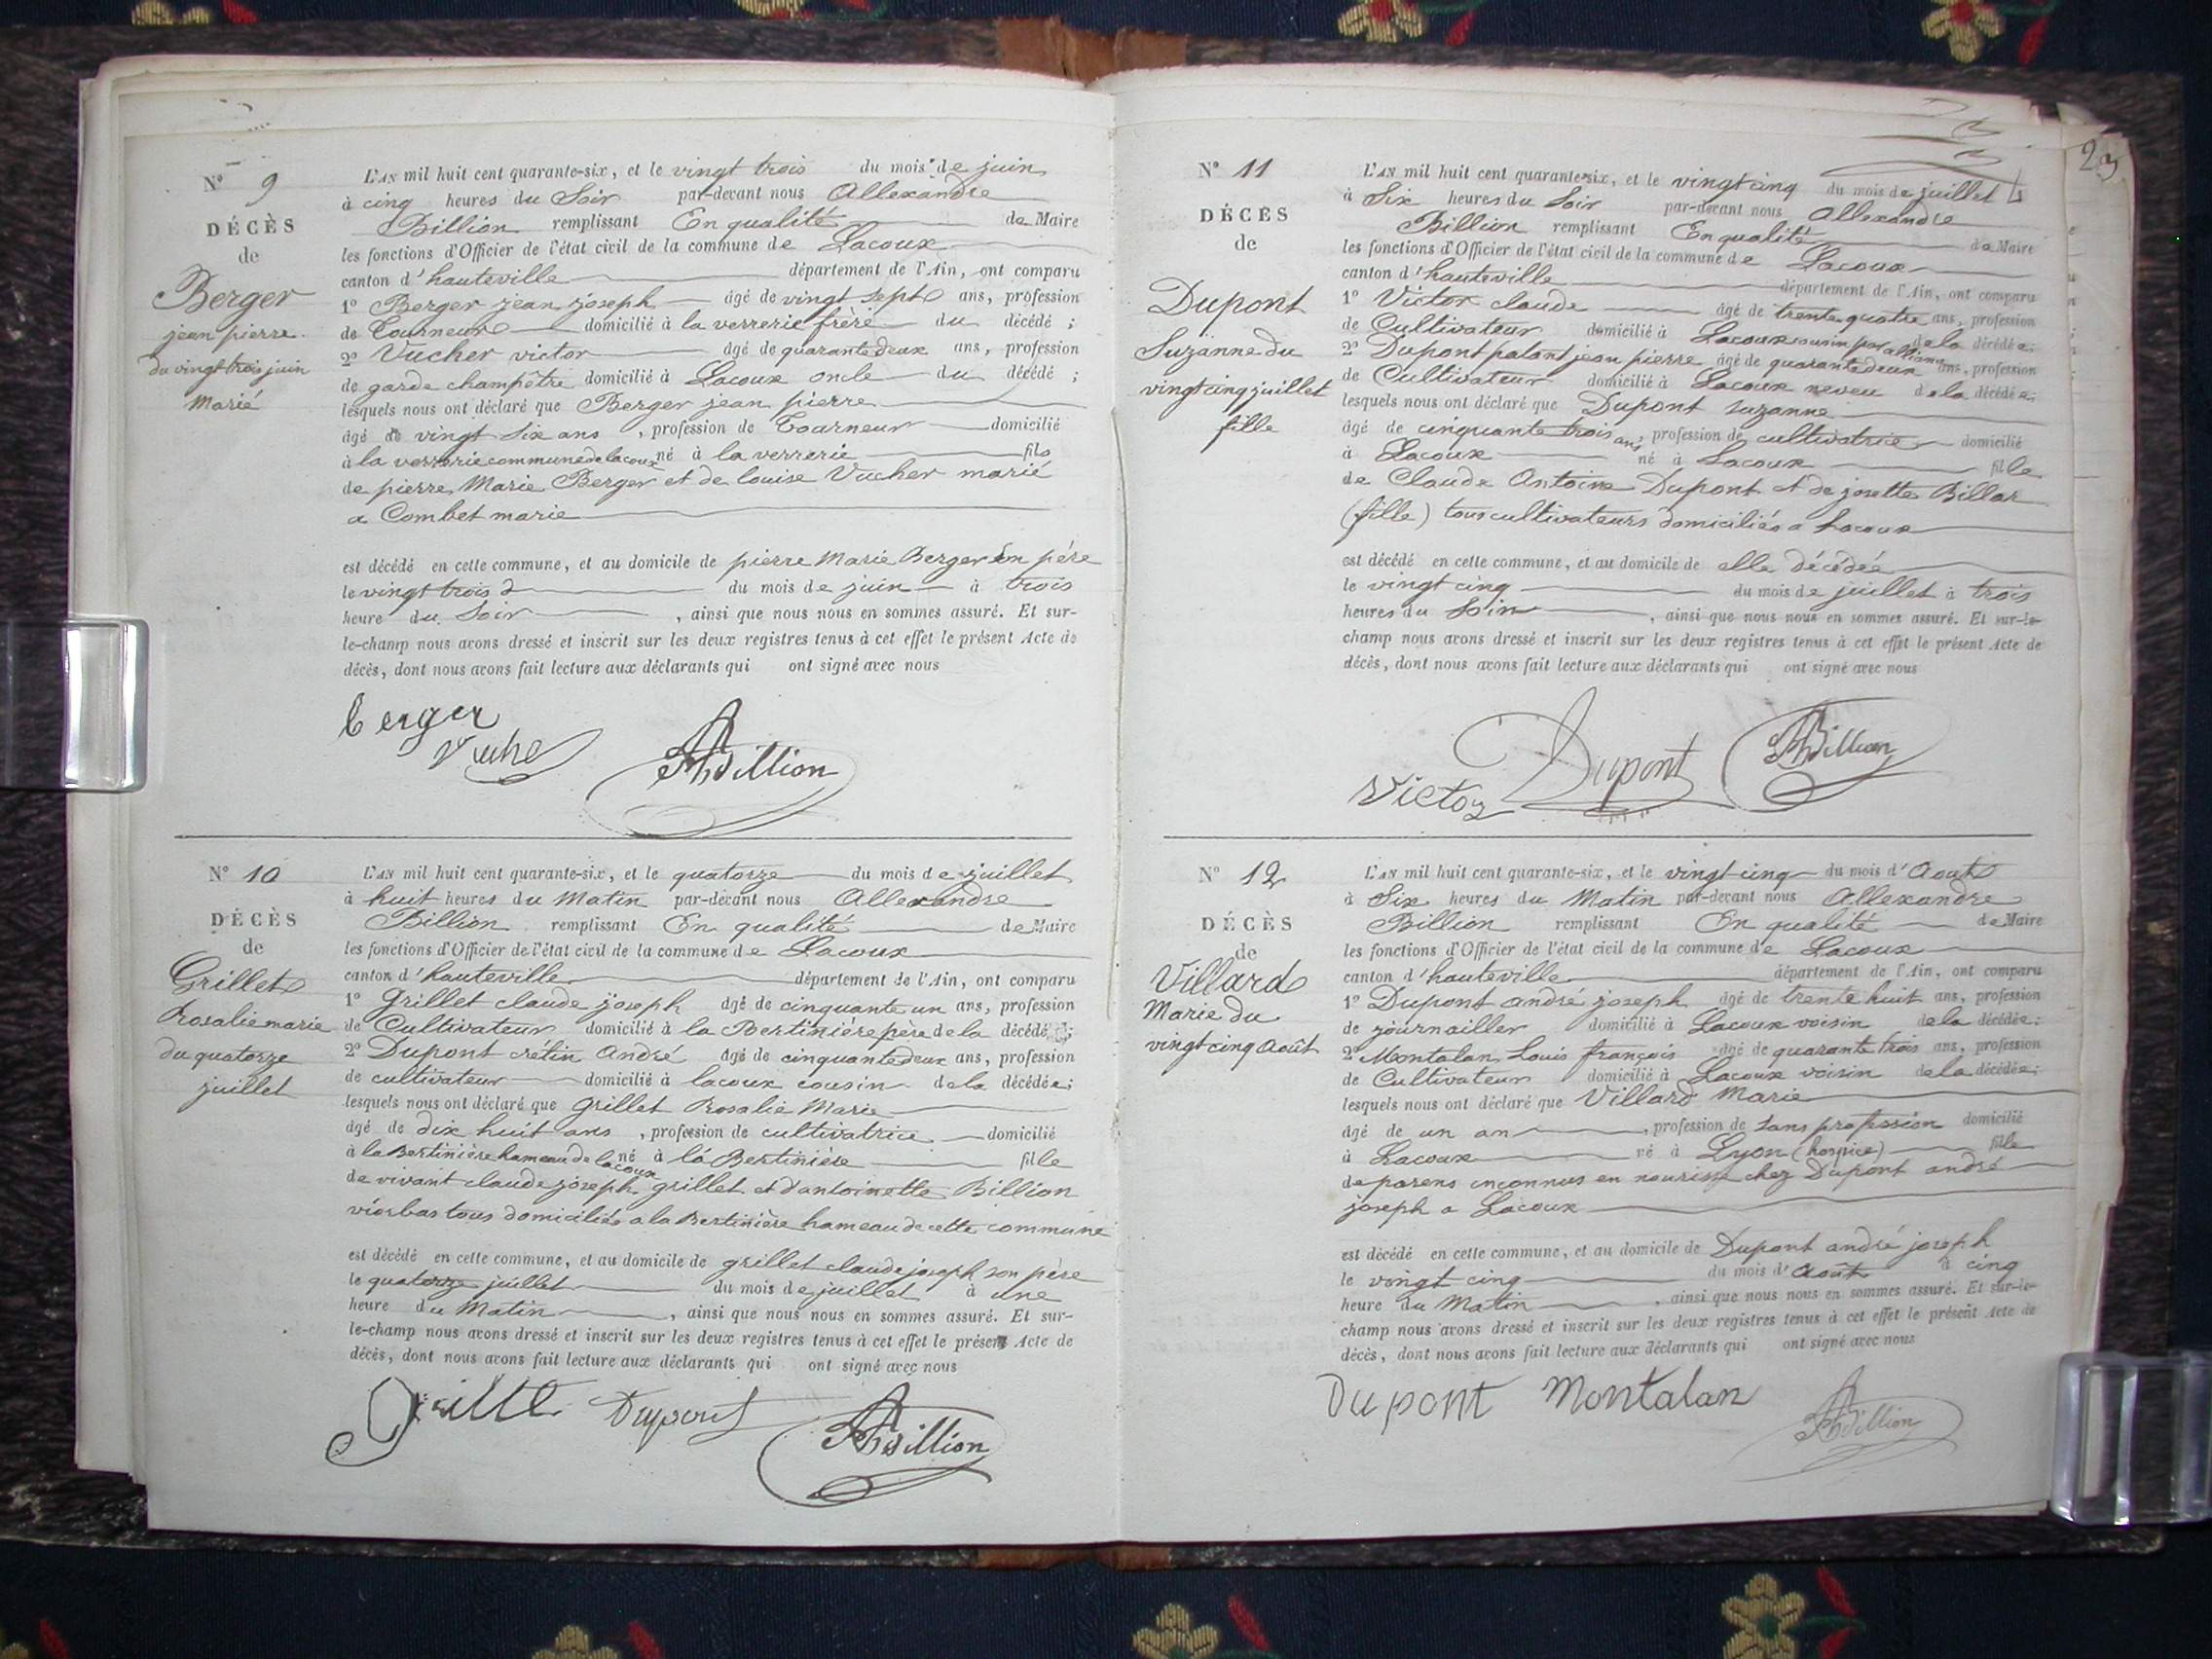 N° 9
DÉCÈS
de
Berger
jean pierre
du vingt trois juin
marié
L'AN mil huit cent quarante-six, et le vingt trois du mois de juin
à cinq heures du Soir par-devant nous Allexandre
Billion remplissant En qualité de Maire
les fonctions d'Officier de l'état civil de la commune de Lacoux
canton d'hauteville département de l'Ain, ont comparu
1° Berger jean joseph âgé de vingt sept ans, profession
de Tourneur domicilié à la verrerie frère du décédé;
2° Vucher victor âgé de quarante deux ans, profession
de garde champêtre domicilié à Lacoux oncle du décédé;
lesquels nous ont déclaré que Berger jean pierre
âgé de vingt Six ans, profession de Tourneur domicilié
à la verrerie commune de lacoux né à la verrerie fils
de pierre Marie Berger et de louise Vucher marié
a Combet marie
est décédé en cette commune, et au domicile de pierre Marie Berger son père
le vingt trois du mois de juin à trois
heure du Soir, ainsi que nous nous en sommes assuré. Et sur-
le-champ nous avons dressé et inscrit sur les deux registres tenus à cet effet le présent Acte de
décès, dont nous avons fait lecture aux déclarants qui ont signé avec nous
berger
Vuche
ABillion
N° 10
DÉCÈS
de
Grillet
Rosalie marie
du quatorze
juillet
L'AN mil huit cent quarante-six, et le quatorze du mois de juillet
à huit heures du Matin par-devant nous Allexandre
Billion remplissant En qualité de Maire
les fonctions d'Officier de l'état civil de la commune de Lacoux
canton d'hauteville département de l'Ain, ont comparu
1° Grillet claude joseph âgé de cinquante un ans, profession
de Cultivateur domicilié à la Bertinière père de la décédé
2° Dupont crétin André âgé de cinquante deux ans, profession
de cultivateur domicilié à lacoux cousin de la décédée;
lesquels nous ont déclaré que Grillet Rosalie Marie
âgé de dix huit ans, profession de cultivatrice domicilié
à la Bertinière hameau de lacoux né à la Bertinière fille
de vivant claude joseph grillet et d'antoinette Billion
tous domiciliés a la Bertinière hameau de cette commune
est décédé en cette commune, et au domicile de grillet claude joseph son père
le quatorze juillet du mois de juillet à une
heure du Matin, ainsi que nous nous en sommes assuré. Et sur-
le-champ nous avons dressé et inscrit sur les deux registres tenus à cet effet le présent Acte de
décès, dont nous avons fait lecture aux déclarants qui ont signé avec nous
Dupont
ABillion
23
N° 11
DÉCÈS
de
Dupont
Suzanne du
vingt cinq juillet
fille
L'AN mil huit cent quarante-six, et le vingt cinq du mois de juillet
à Six heures du Soir par-devant nous Allexandre
Billion remplissant En qualité de Maire
les fonctions d'Officier de l'état civil de la commune de Lacoux
canton d'hauteville département de l'Ain, ont comparu
1° Victor claude âgé de trente quatre ans, profession
de Cultivateur domicilié à Lacoux cousin par alliance de la décédée;
2° Dupont patant jean pierre âgé de quarante deux ans, profession
de Cultivateur domicilié à Lacoux neveu de la décédée
lesquels nous ont déclaré que Dupont suzanne
âgé de cinquante trois ans, profession de cultivatrice domicilié
à Lacoux né à Lacoux fille
de Claude Antoine Dupont et de josette Billar
(fille) tous cultivateurs domiciliés a Lacoux
est décédé en cette commune, et au domicile de elle décédée
le vingt cinq du mois de juillet à trois
heures du Soir, ainsi que nous nous en sommes assuré. Et sur-le-
champ nous avons dressé et inscrit sur les deux registres tenus à cet effet le présent Acte de
décès, dont nous avons fait lecture aux déclarants qui ont signé avec nous
Victor Dupont ABillion
N° 12
DÉCÈS
de
Villard
Marie du
vingt cinq Août
L'AN mil huit cent quarante-six, et le vingt cinq du mois d'Aout
à Six heures du Matin par-devant nous Allexandre
Billion remplissant En qualité de Maire
les fonctions d'Officier de l'état civil de la commune de Lacoux
canton d'hauteville département de l'Ain, ont comparu
1° Dupont andré joseph âgé de trente huit ans, profession
de journailler domicilié à Lacoux voisin de la décédée;
2° Montalan Louis françois âgé de quarante trois ans, profession
de Cultivateur domicilié à Lacoux voisin de la décédée;
lesquels nous ont déclaré que Villard Marie
âgé de un an, profession de Sans profession domicilié
à Lacoux né à Lyon (hospice) fille
de parens inconnus en nourisse chez Dupont andré
joseph a Lacoux
est décédé en cette commune, et au domicile de Dupont andré joseph
le vingt cinq du mois d'Août à cinq
heure du Matin, ainsi que nous nous en sommes assuré. Et sur-le-
champ nous avons dressé et inscrit sur les deux registres tenus à cet effet le présent Acte de
décès, dont nous avons fait lecture aux déclarants qui ont signé avec nous
Dupont Montalan
ABillion